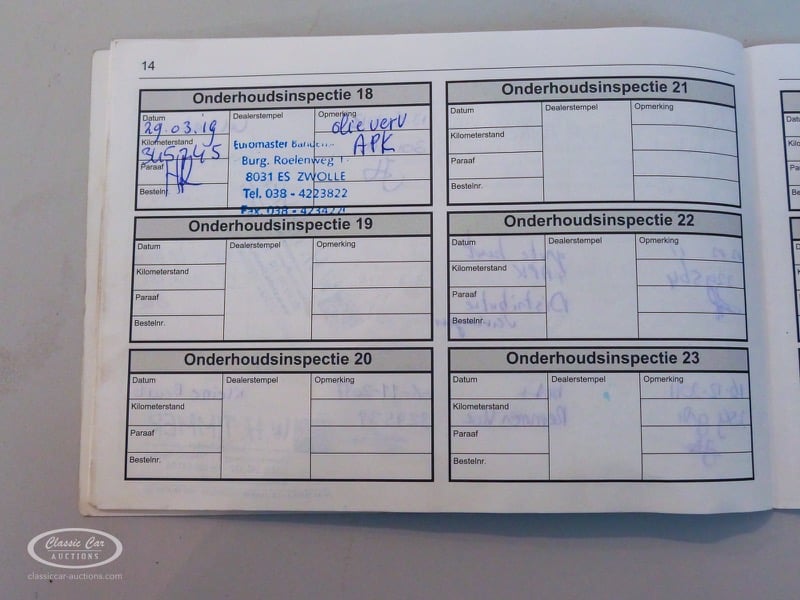 14
Onderhoudsinspectie 18
Datum Dealerstempel Opmerking
29.03.19 olie verv
Kilometerstand APK
345745
Paraaf
Bestelnr.
Euromaster
Burg. Roelenweg
8031 ES ZWOLLE
Tel. 038 - 4223822
Fax. 038 -
Onderhoudsinspectie 19
Datum Dealerstempel Opmerking
Kilometerstand
Paraaf
Bestelnr.
Onderhoudsinspectie 20
Datum Dealerstempel Opmerking
Kilometerstand
Paraaf
Bestelnr.
Onderhoudsinspectie 21
Datum Dealerstempel Opmerking
Kilometerstand
Paraaf
Bestelnr.
Onderhoudsinspectie 22
Datum Dealerstempel Opmerking
Kilometerstand
Paraaf
Bestelnr.
Onderhoudsinspectie 23
Datum Dealerstempel Opmerking
Kilometerstand
Paraaf
Bestelnr.
Classic Car
AUCTIONS
classiccar-auctions.com